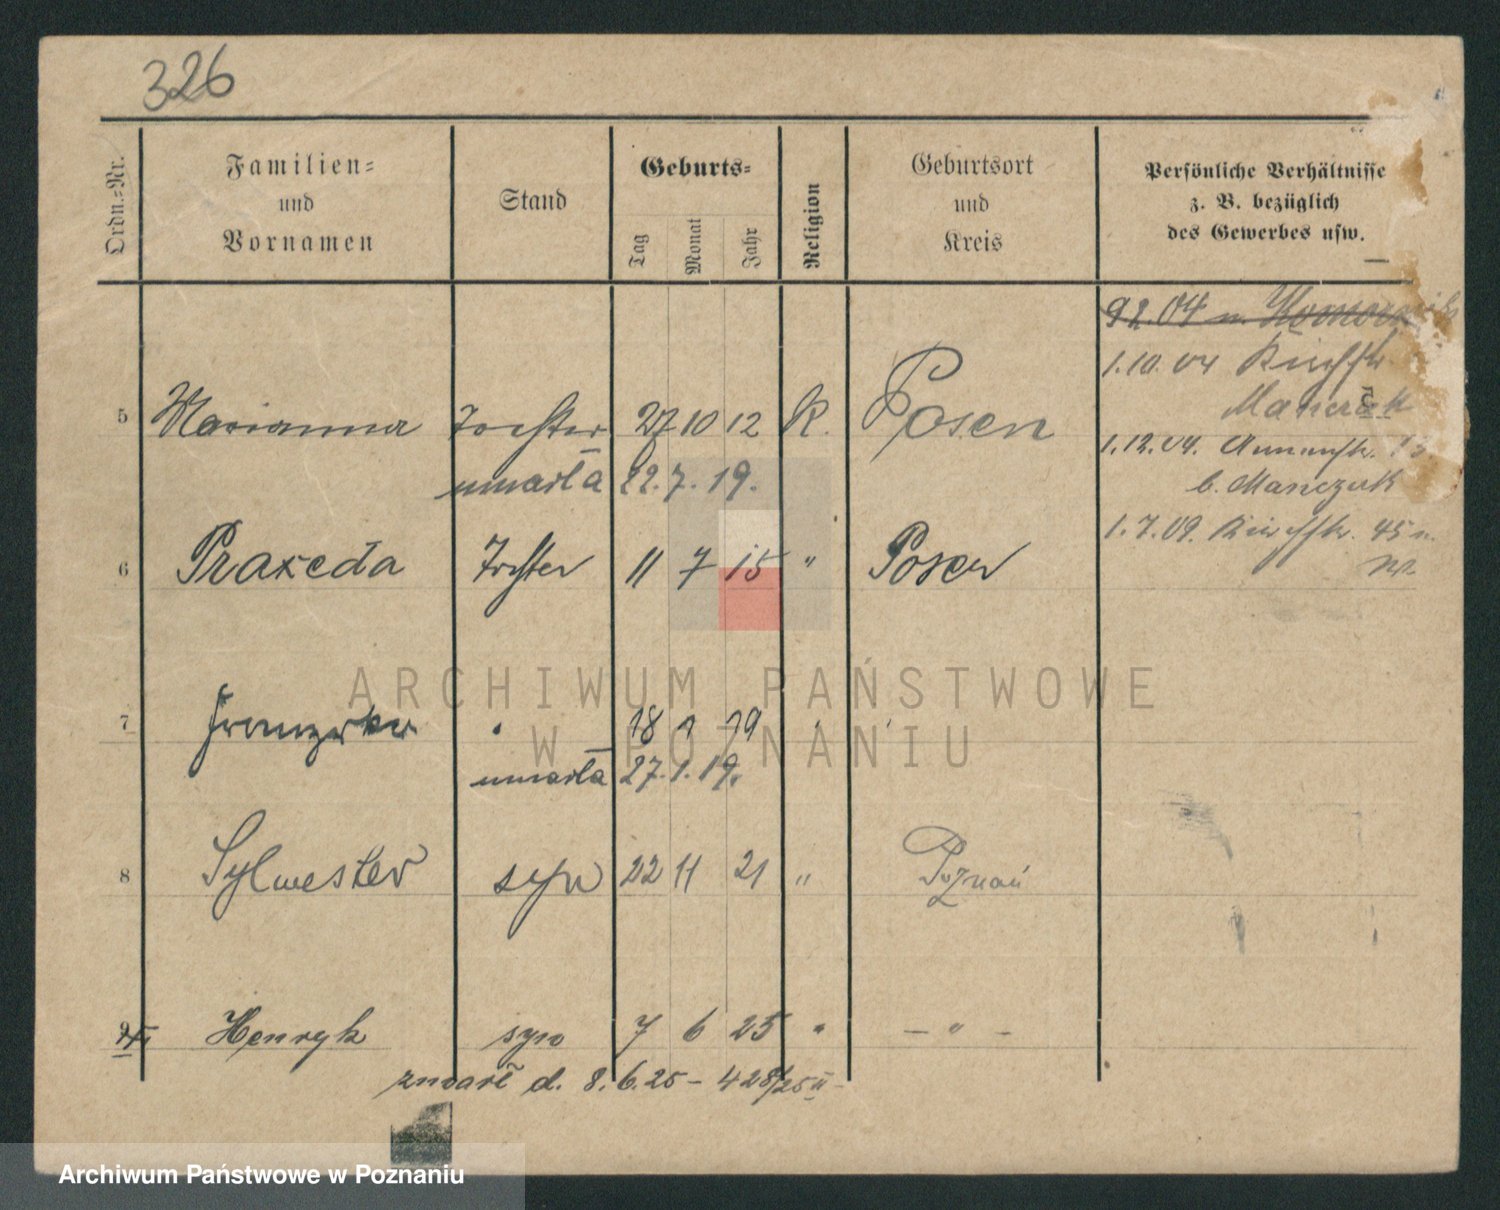 326
Ordn.-Nr.
Familien-
und
Vornamen
Stand
Geburts-
Tag
Monat
Jahr
Religion
Geburtsort
und
Kreis
Persönliche Verhältnisse
z. B. bezüglich
des Gewerbes usw.
1.10.04 Kirchstr.
Manczak
1.12.04. Annenstr.
b. Manczak
1.7.09. Kirchstr. 45
5 Marianna Tochter 27 10 12 K. Posen
umarła 22.7.19.
6 Praxeda Tochter 11 7 15 " Posen
ARCHIWUM PAŃSTWOWE
W POZNANIU
7 Franziska 18 1 19
umarła 27.1.19.
8 Sylwester syn 22 11 21 " Poznań
9 Henryk syn 7 6 25 " – " –
zmarł d. 8.6.25 – 428/25 II
Archiwum Państwowe w Poznaniu